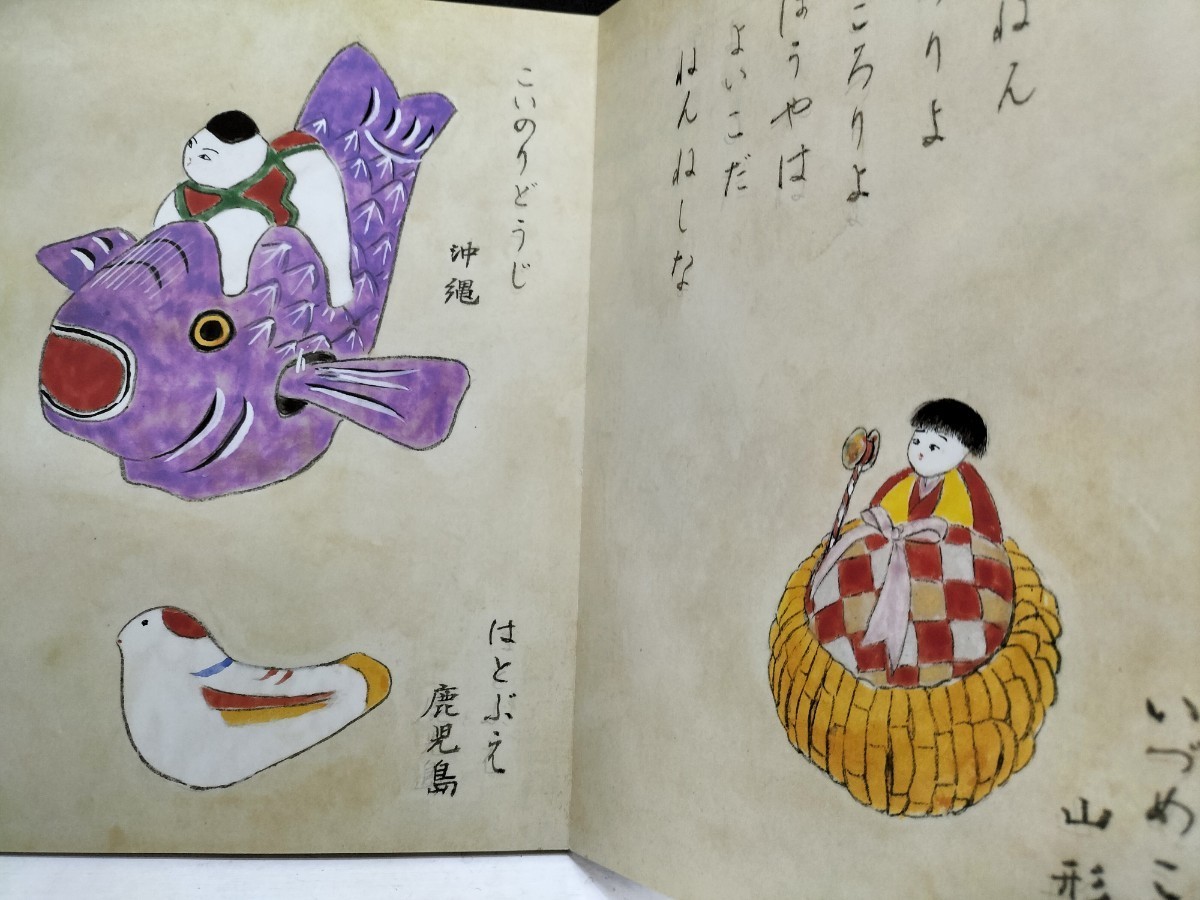 ねん
りよ
ころりよ
ほうやは
よいこだ
ねんねしな
いづめこ
山形
こいのりどうじ
沖縄
はとぶえ
鹿児島